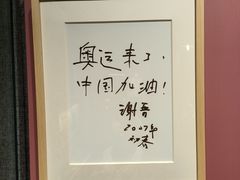 奥运来了，
中国加油！
谢晋
2007年
初春